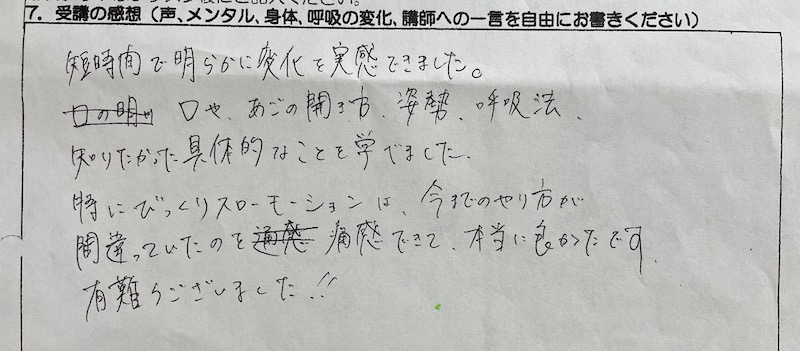 7. 受講の感想（声、メンタル、身体、呼吸の変化、講師への一言を自由にお書きください）
短時間で明らかに変化を実感できました。
口や、あごの開き方、姿勢、呼吸法、
知りたかった具体的なことを学べました。
特にびっくりスローモーションは、今までのやり方が
間違っていたのを痛感できて、本当に良かったです。
有難うございました!!